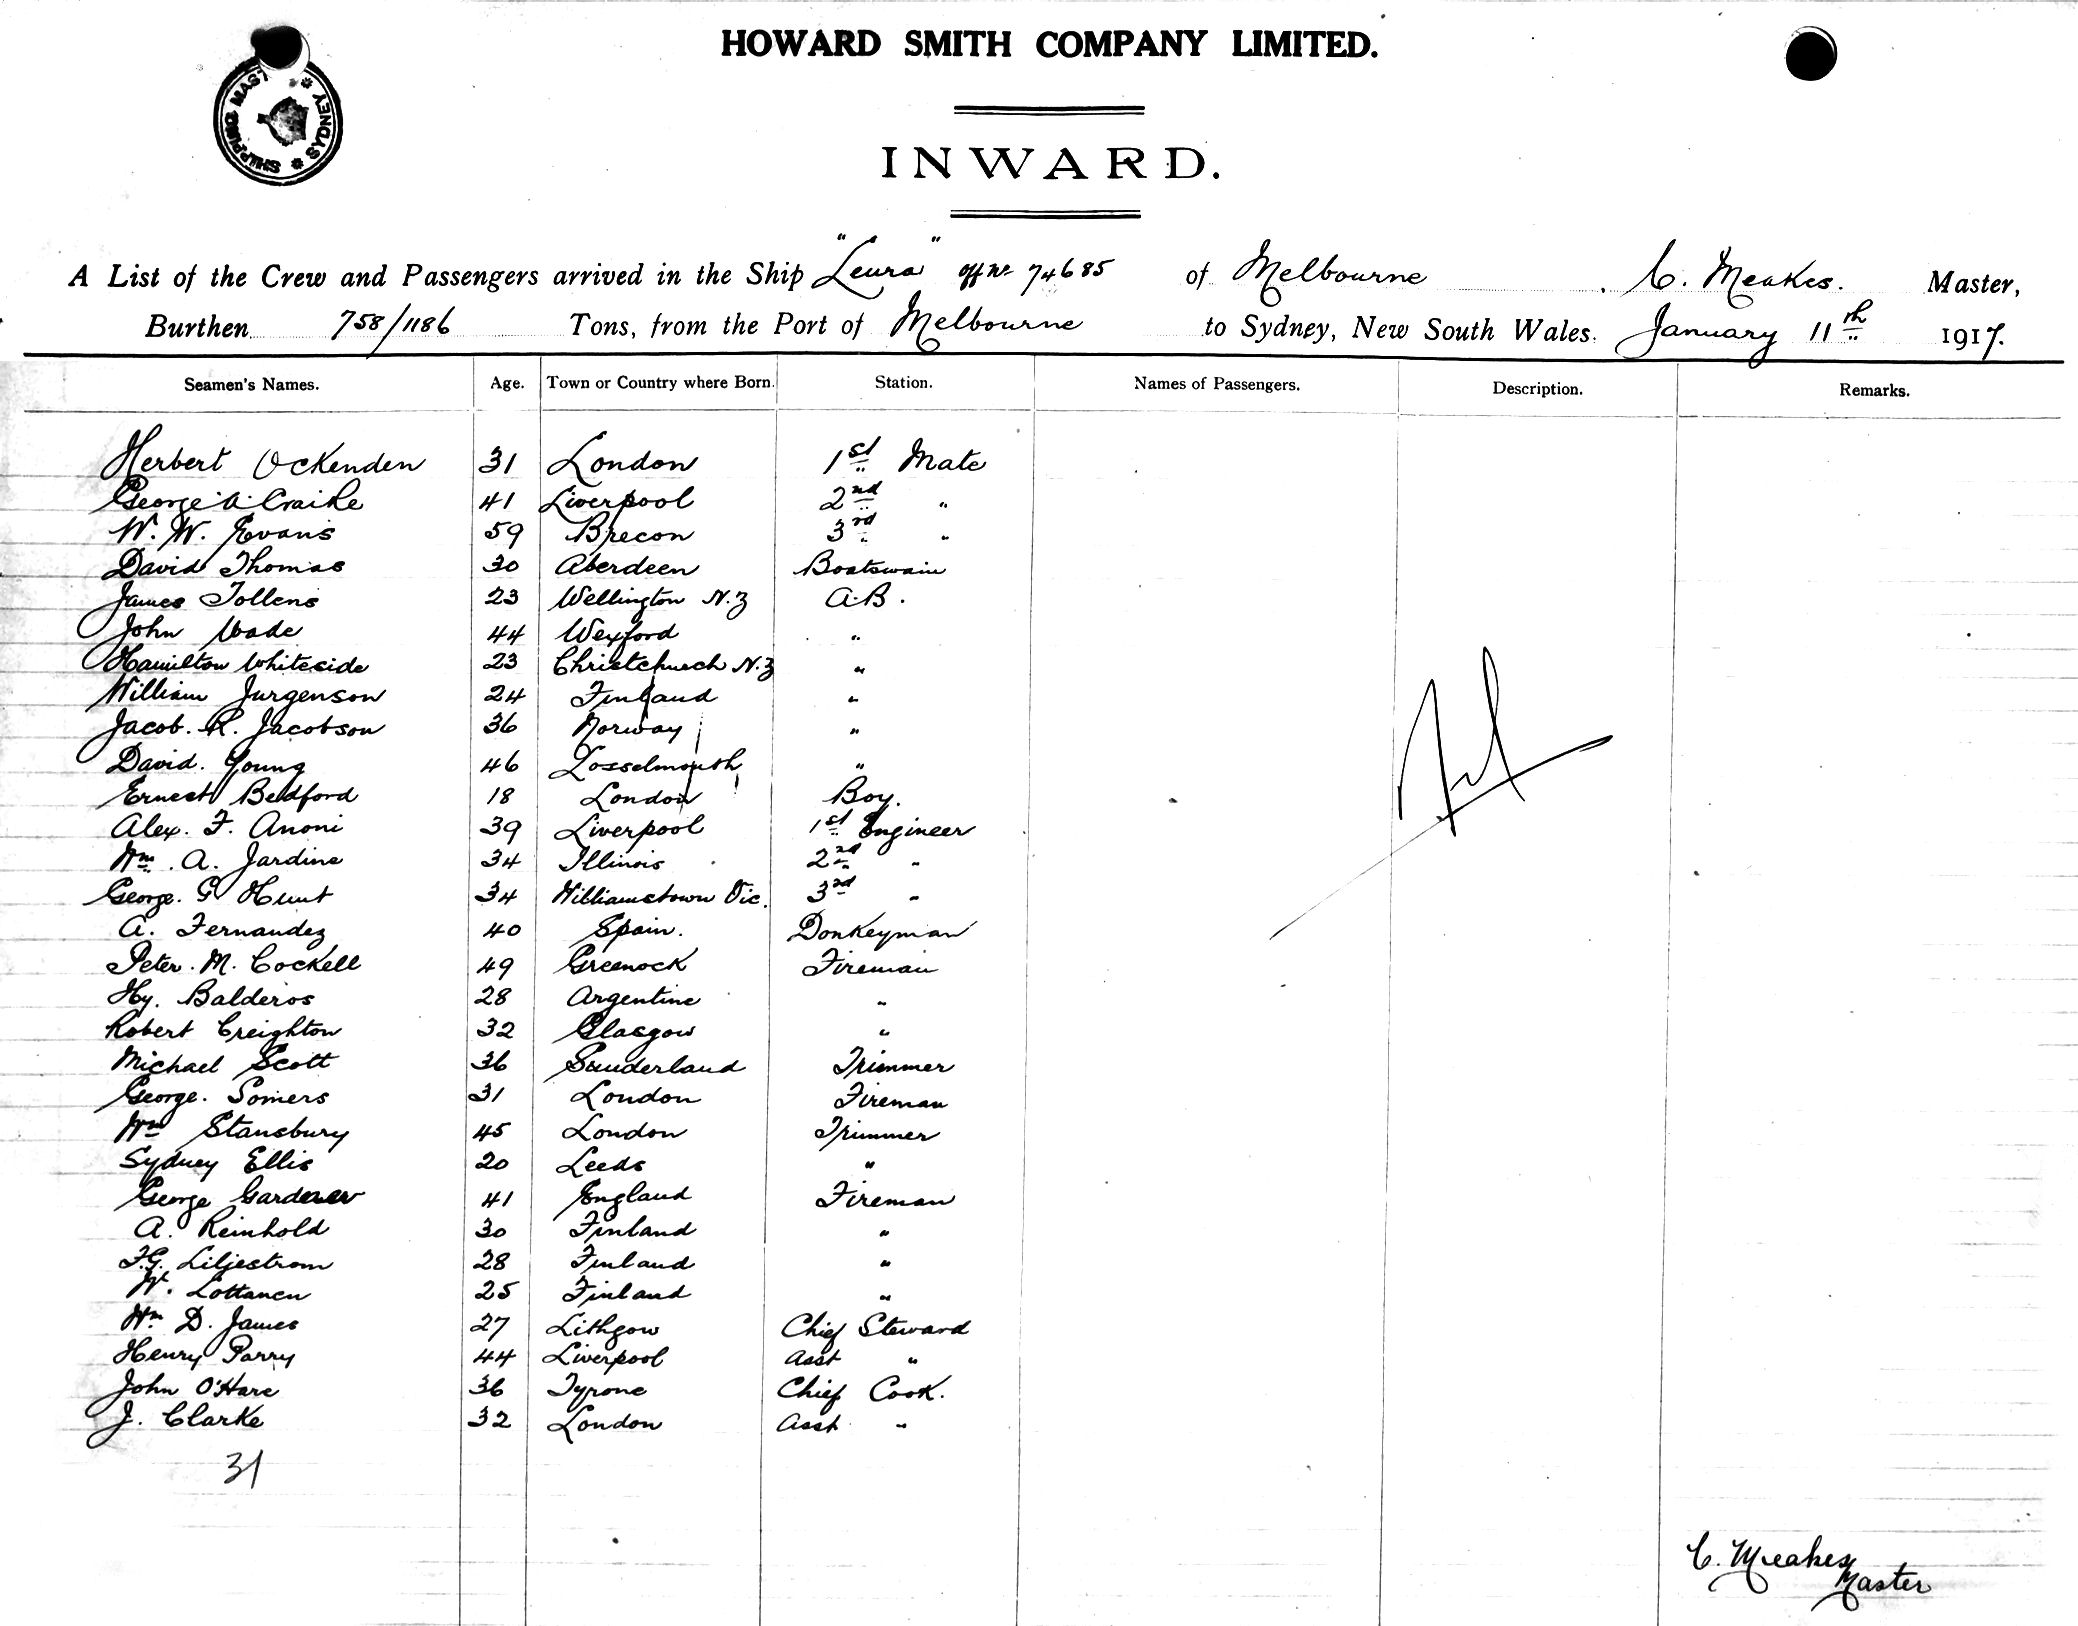 HOWARD SMITH COMPANY LIMITED.
SHIPPING MAS
SYDNEY
INWARD.
A List of the Crew and Passengers arrived in the Ship "Leura" off no 74685 of Melbourne C. Meakes. Master,
Burthen 758/1186 Tons, from the Port of Melbourne to Sydney, New South Wales. January 11th 1917.
Seamen's Names. Age. Town or Country where Born. Station. Names of Passengers. Description. Remarks.
Herbert Ockenden 31 London 1st Mate
George A. Craike 41 Liverpool 2nd "
W. W. Evans 59 Brecon 3rd "
David Thomas 30 Aberdeen Boatswain
James Tollens 23 Wellington N.Z A.B.
John Wade 44 Wexford "
Hamilton Whiteside 23 Christchurch N.Z "
William Jurgenson 24 Finland "
Jacob. R. Jacobson 36 Norway "
David. Young 46 Losselmouth "
Ernest Bedford 18 London Boy.
Alex. F. Anoni 39 Liverpool 1st Engineer
Wm. A. Jardine 34 Illinois 2nd "
George. G Hunt 34 Williamstown Vic. 3rd "
A. Fernandez 40 Spain. Donkeyman
Peter. M. Cockell 49 Greenock Fireman
Hy. Balderos 28 Argentine "
Robert Creighton 32 Glasgow "
Michael Scott 36 Sunderland Trimmer
George. Somers 31 London Fireman
Wm Stansbury 45 London Trimmer
Sydney Ellis 20 Leeds "
George Gardener 41 England Fireman
A. Reinhold 30 Finland "
F.G. Liljestrom 28 Finland "
W. Lottanen 25 Finland "
Wm D. James 27 Lithgow Chief Steward
Henry Parry 44 Liverpool Asst "
John O'Hare 36 Tyrone Chief Cook.
J. Clarke 32 London Asst "
31
C. Meakes
Master